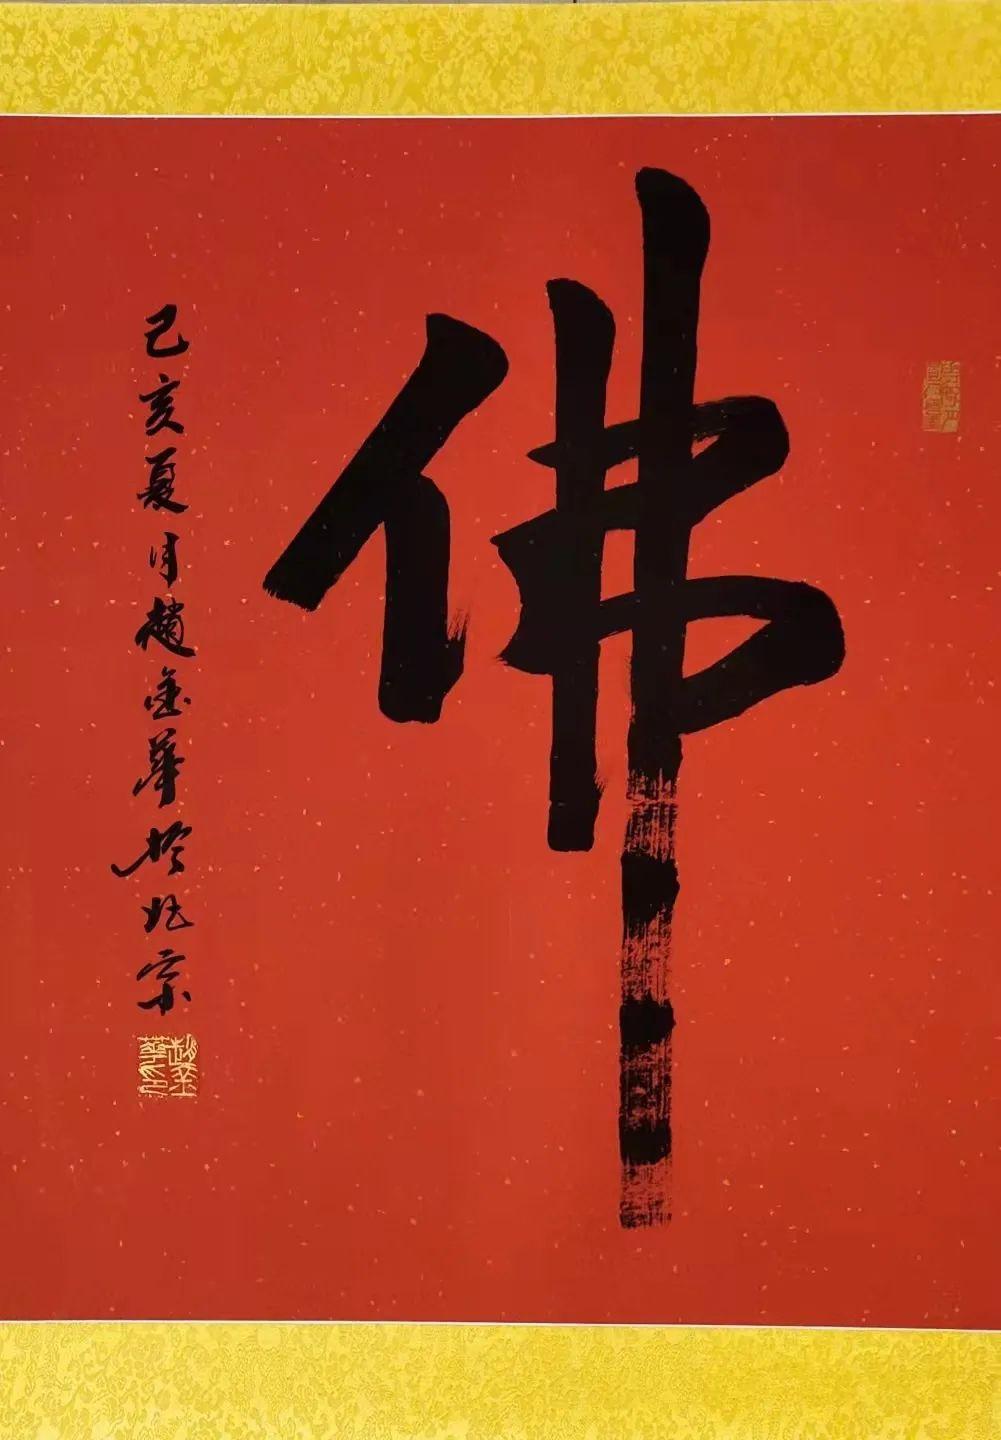 佛
己亥夏月趙金華於北京
趙金華印